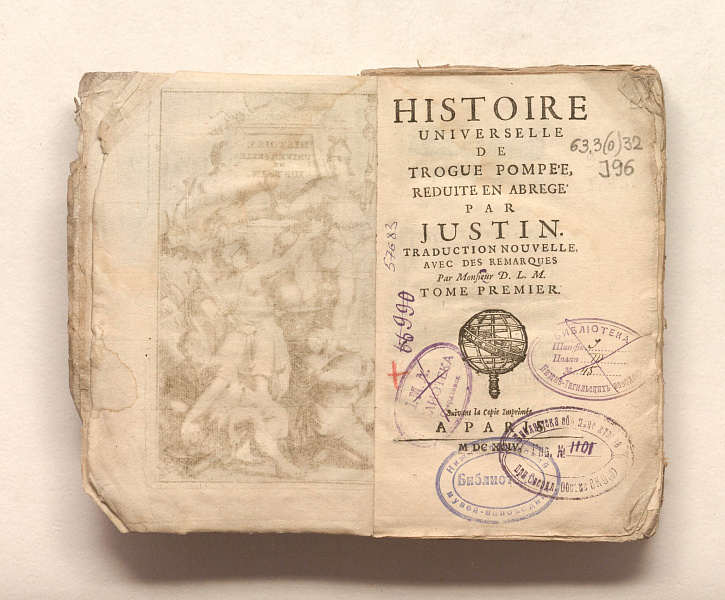 HISTOIRE
UNIVERSELLE
DE
TROGUE POMPE'E,
REDUITE EN ABREGE'
PAR
JUSTIN.
TRADUCTION NOUVELLE,
AVEC DES REMARQUES
Par Monsieur D. L. M.
TOME PREMIER.
63.3(0)32
J96
57683
66990
БИБЛИОТЕКА
Шкафъ
Полка
№ 45
Нижне-Тагильскихъ заводовъ
Suivant la Copie Imprimée
A PARIS
M DC XCIV.
Инв. № 1101
Библиот
музей-заповедник